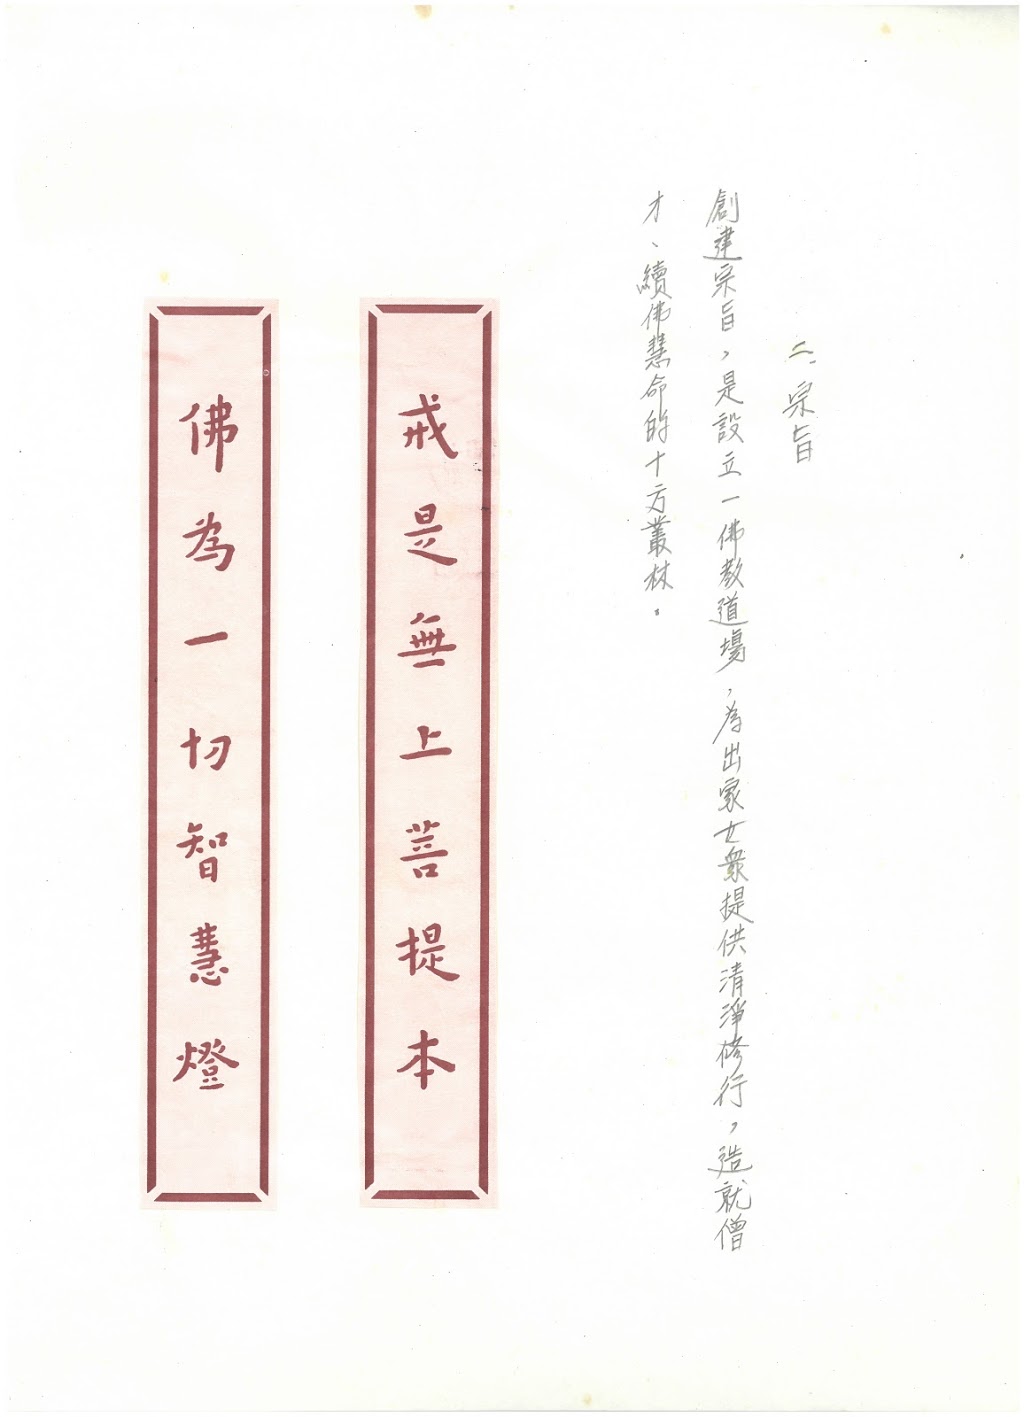 二、宗旨
創建宗旨，是設立一佛教道場，為出家女衆提供清淨修行，造就僧
才、續佛慧命的十方叢林。
戒是無上菩提本
佛為一切智慧燈